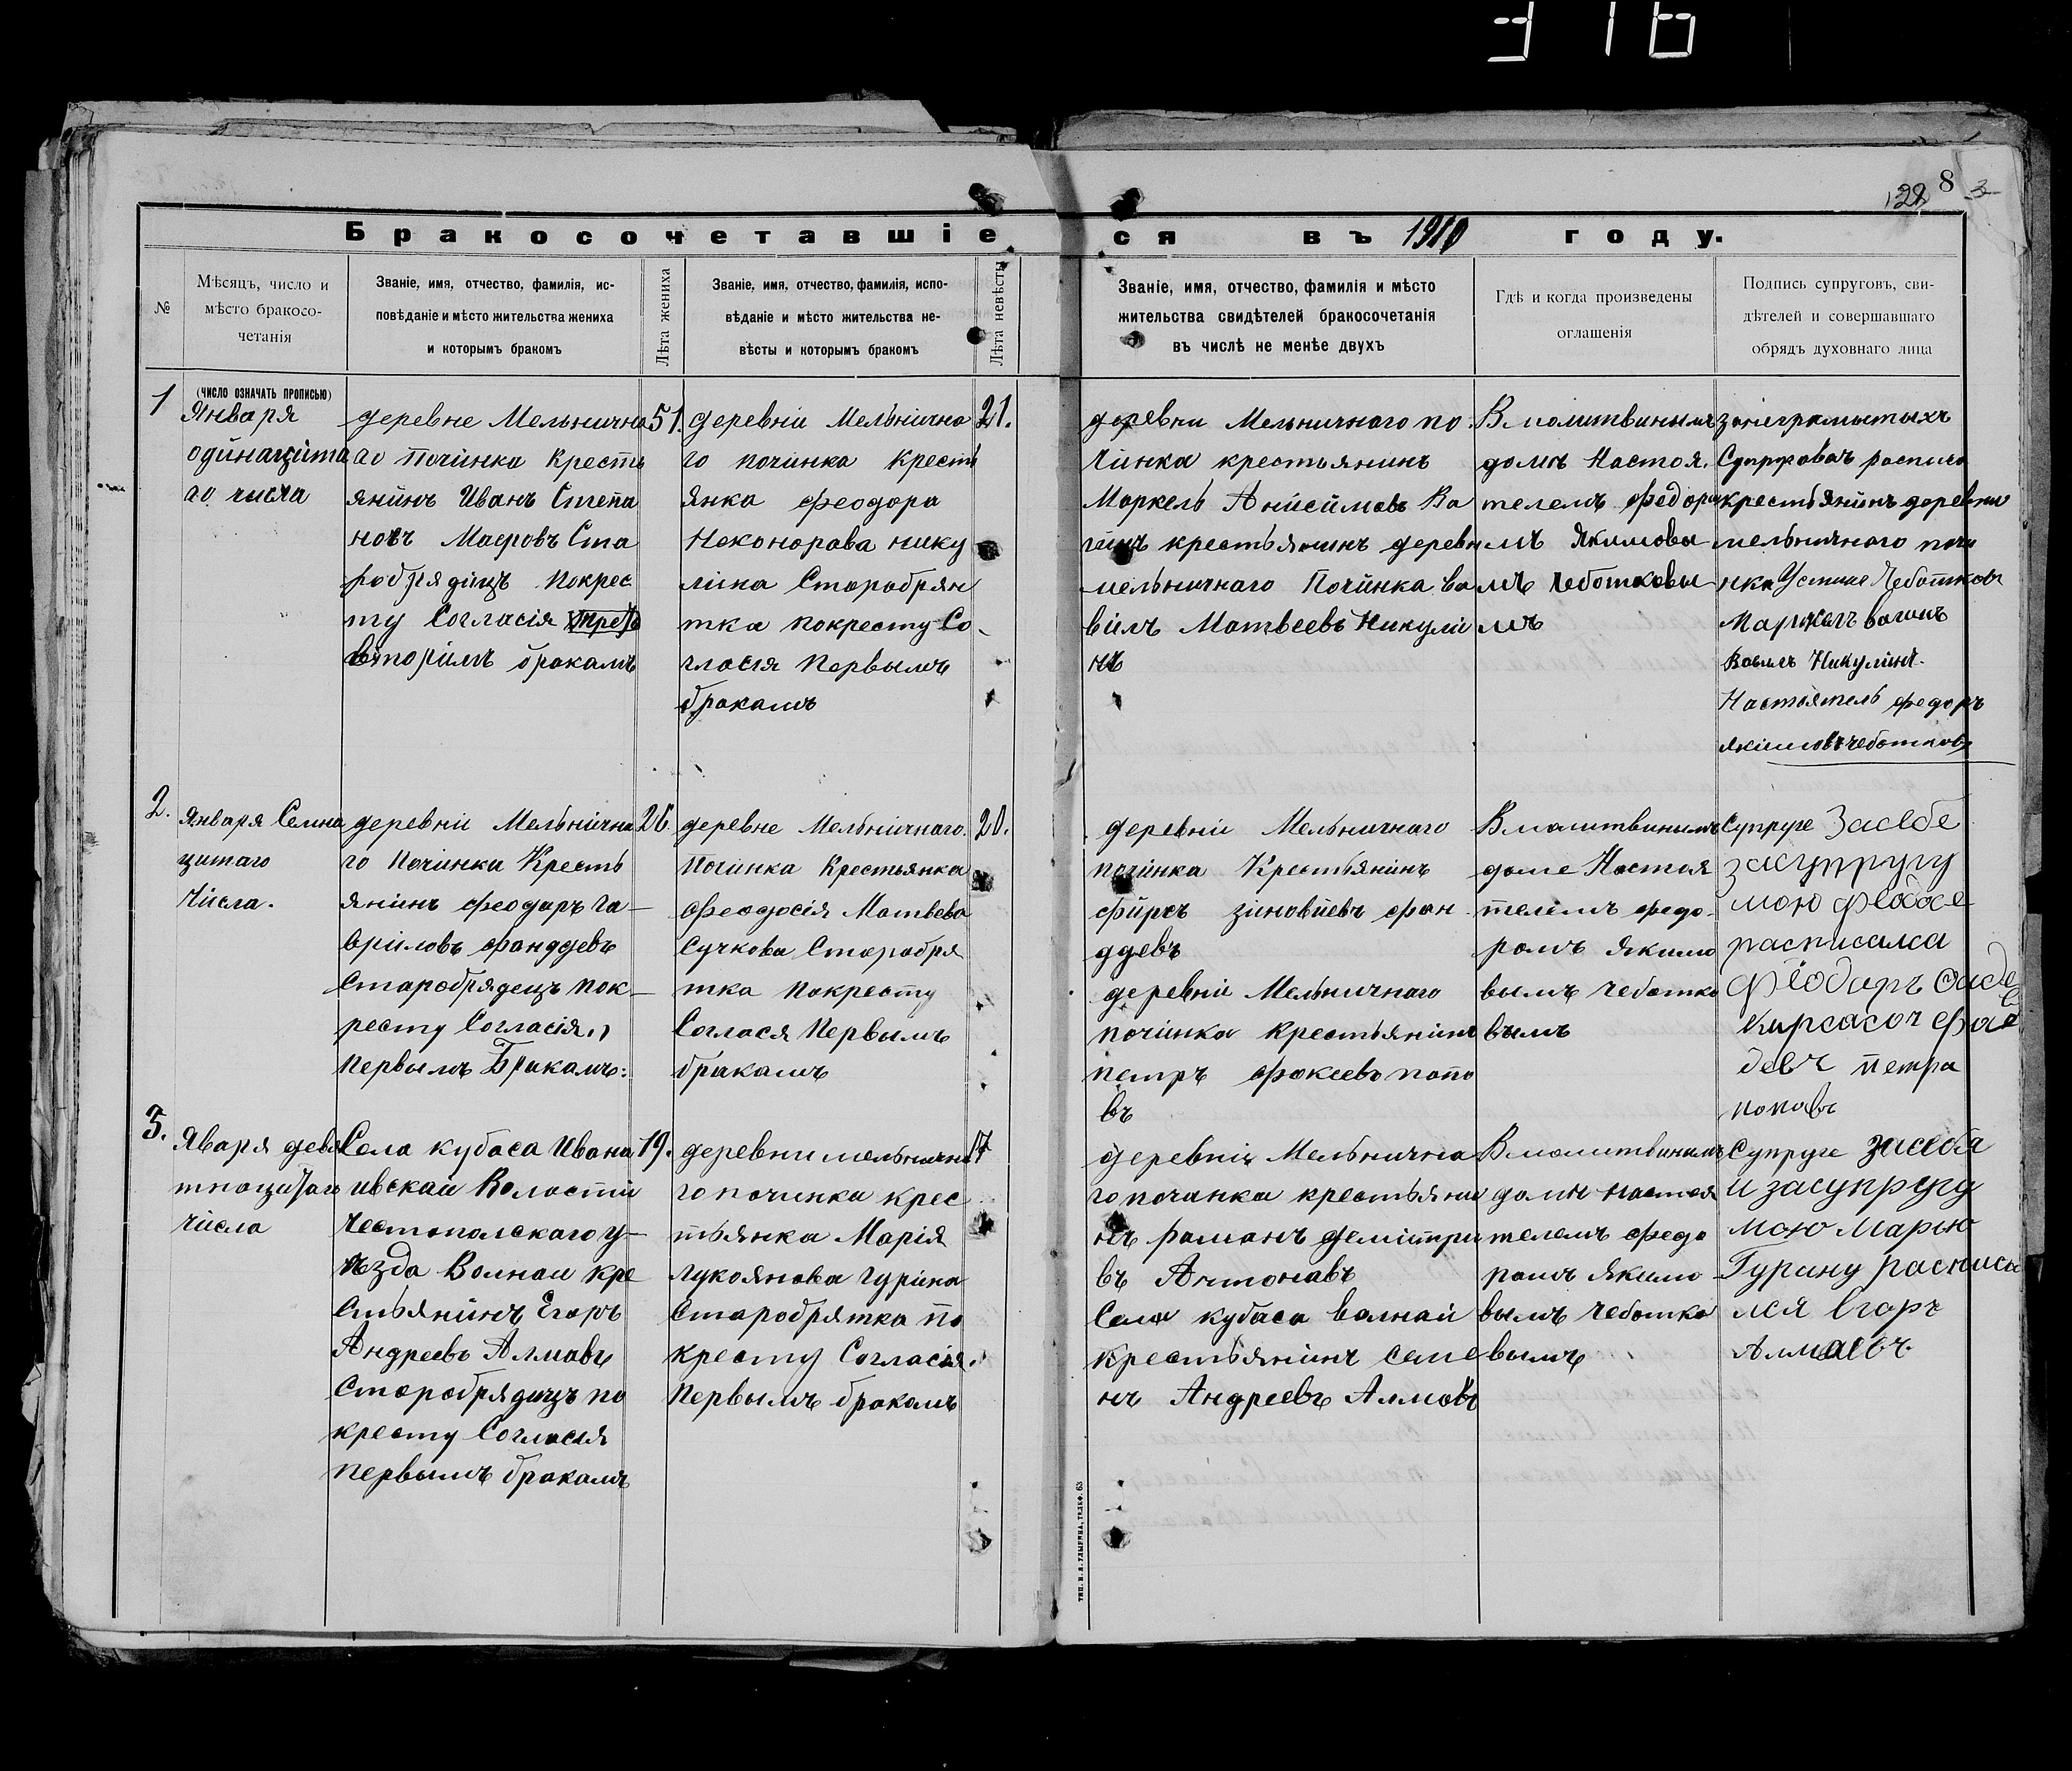 316
122 8 3
Бракосочетавшіе
ся въ 1910 году.
№
Мѣсяцъ, число и
мѣсто бракосо-
четанія
Званіе, имя, отчество, фамилія, ис-
повѣданіе и мѣсто жительства жениха
и которымъ бракомъ
Лѣта жениха
Званіе, имя, отчество, фамилія, испо-
вѣданіе и мѣсто жительства не-
вѣсты и которымъ бракомъ
Лѣта невѣсты
Званіе, имя, отчество, фамилія и мѣсто
жительства свидѣтелей бракосочетанія
въ числѣ не менѣе двухъ
Гдѣ и когда произведены
оглашенія
Подпись супруговъ, сви-
дѣтелей и совершавшаго
обрядъ духовнаго лица
1
(число означать прописью)
Января
одинацита
го числа
деревне Мельнична
го Починка Кресть
янинъ Иванъ Степа
новъ Маеровъ Ста
робрядицъ покрес
ту Согласія
вторімъ бракамъ
51.
деревніи Мельнична
го починка кресті
янка феодора
Неконорава нику
ліна Старобрян
тка покресту Со
гласія первымъ
бракамъ
21.
деревни Мельничнаго по
чинка крестьянинъ
Маркелъ Анисімовъ Ва
гинъ крестьянинъ деревн
мельничнаго Починка Ва
вилъ Матвеевъ Никулі
нъ
Вмолитвинымъ
доми Настоя
телемъ Федоро
мъ Якимова
мъ Чеботковы
мъ
занеграмотыхъ
Супруговъ расписа
крестьянинъ деревни
мельничнаго почи
нка Устине Чеботковъ
Маркелъ вагинъ
Вавилъ Никулинъ.
Настоятель федоръ
якимовъ чеботковъ
2.
Января Семна
цитаго
Числа.
деревніи Мельнична
го Починки Кресть
янинъ феодаръ Га
вриловъ фанддевъ
Старобрядецъ пок
ресту Согласія.
первымъ Бракамъ:
26.
деревне Мельничнаго
Починка Крестьянка
феодосія Матвева
Сучкова Старобря
тка покресту
Согласія Первымъ
бракамъ
20.
деревніи Мельничнаго
починка Крестьянинъ
фирсъ зиновйевъ фан
ддевъ
деревніи Мельничнаго
починка крестьянинъ
петръ фокеевъ попо
въ
Вмолитвинымъ
доме Настоя
телемъ федо
ромъ якимо
вымъ чеботко
вымъ
Супруге Засебе
засупругу
мою
расписалса
петра
поповъ
3.
Яваря девя
тнацитаго
числа
Села кубаса Ивана
ивскай Воластіи
Честопольскаго у
езда Волнаи кре
стьянинъ Егоръ
Андреевъ Алмавъ
Старобрядицъ по
кресту Согласія
первымъ бракамъ
19.
деревни мельнична
го починка крес
тьянка Марія
Лукоянова Гуріна
Старобрятка по
кресту Согласія.
Первымъ бракамъ
17
деревнія Мельнична
го починка крестьяни
нъ раманъ демітри
въ Антонавъ
Села кубаса валнай
крестьянинъ семе
нъ Андреевъ Алмавъ
Вмолитвинымъ
доми настоя
телемъ федо
ромъ якимо
вымъ чеботко
вымъ
Супруге засебя
и засупругу
мою Марью
Гурину расписа
лся Егоръ
Алмаевъ